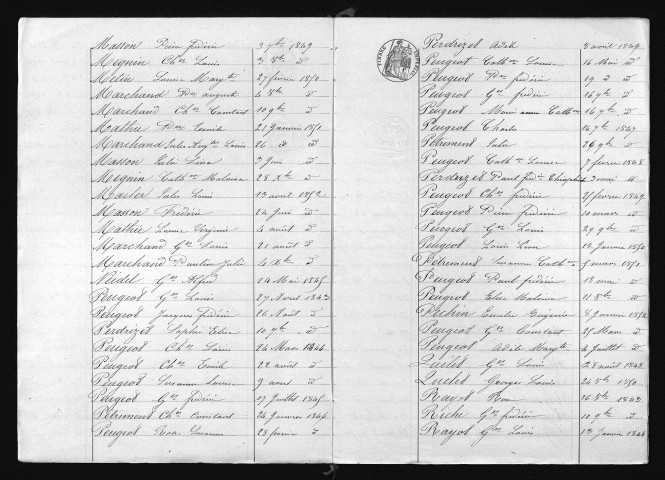 Masson Pierre frédéric 3 7bre 1849
Mégnin Ches Louis 3 8bre d°
Mélin Louise Margte 27 février 1850
Marchand Pre auguste 4 8bre d°
Marchand Ches Constant 10 9bre d°
Mathie Pre Emile 21 Janvier 1851
Marchand Jules Louis 26 d° d°
Masson Julie Léna 2 Juin d°
Mégnin Cathne Malvina 28 Xbre d°
Jules Louis 12 avril 1852
Masson Frédéric 24 Juin d°
Mathie Louise Virginie 4 août d°
Marchand Ges Louis 21 août d°
Marchand Pauline Julie 4 Xbre d°
Nédel Ges Alfred 24 Mai 1845
Peugeot Ges Louis 27 Avril 1843
Peugeot Jacques frédéric 26 Août d°
Perdrizet Sophie Elise 10 7bre d°
Peugeot Ches Louis 24 Mars 1844
Peugeot Ches Emile 28 août d°
Peugeot Susanne Louise 9 avril d°
Peugeot Ges frédéric 17 Juillet 1845
Pétrement Ches Constant 24 Janvier 1846
Peugeot Rose Susanne 28 février d°
Perdrizet Adèle 8 avril 1847
Peugeot Cathne Louise 16 Mai d°
Peugeot Pre frédéric 19 d° d°
Peugeot Ges frédéric 16 7bre d°
Peugeot Marie anne Cathne 16 7bre d°
Peugeot Charles 16 7bre 1847
Pétrement Julie 26 9bre d°
Peugeot Cathne Louise 7 février 1848
Perdrizet Paul fréd. Théophile 2 mai d°
Peugeot Ches frédéric 2 février 1849
Peugeot Pierre frédéric 10 mars d°
Peugeot Ges Louis 29 9bre d°
Peugeot Louis 12 Janvier 1850
Pétrement Susanne Cathne 5 mars 1851
Peugeot Paul frédéric 13 mai d°
Peugeot Elise Malvina 11 8bre d°
Péchin Emelie Eugénie 8 Janvier 1852
Peugeot Ges Constant 21 Mars d°
Peugeot Adèle Margte 4 Juillet d°
Quilet Ges Louis 23 août 1843
Quilet Georges Louis 24 8bre 1850
Rayot 16 8bre 1843
Riche Ges frédéric 10 9bre d°
Rayot Ges Louis 12 Janvier 1844